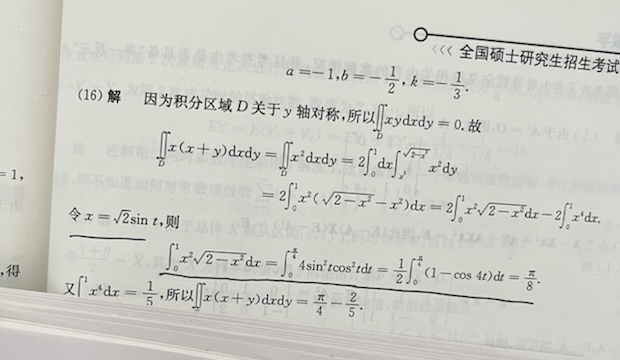 <<< 全国硕士研究生招生考试
a = −1, b = −1/2, k = −1/3.
(16) 解 因为积分区域 D 关于 y 轴对称,所以∬_D xydxdy = 0. 故
∬_D x(x + y)dxdy = ∬_D x²dxdy = 2∫₀¹dx∫_{x²}^{√(2−x²)} x²dy
= 2∫₀¹ x²(√(2 − x²) − x²)dx = 2∫₀¹ x²√(2 − x²)dx − 2∫₀¹ x⁴dx.
= 1,
令 x = √2sin t,则
∫₀¹ x²√(2 − x²)dx = ∫₀^{π/4} 4sin²tcos²tdt = 1/2∫₀^{π/4}(1 − cos 4t)dt = π/8.
,得
又∫₀¹ x⁴dx = 1/5,所以∬_D x(x + y)dxdy = π/4 − 2/5.